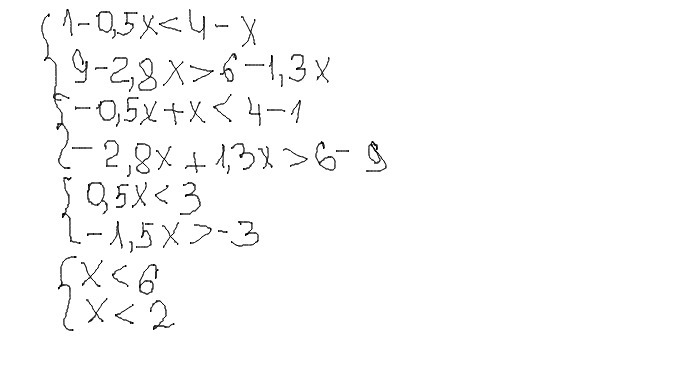 1-0,5x<4-x
9-2,8x>6-1,3x
-0,5x+x<4-1
-2,8x+1,3x>6-9
0,5x<3
-1,5x>-3
x<6
x<2